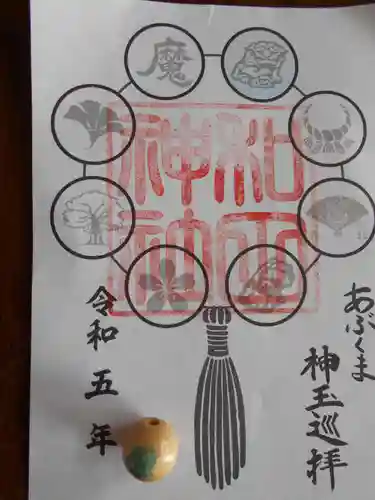 魔
あぶくま
神玉巡拝
令和五年